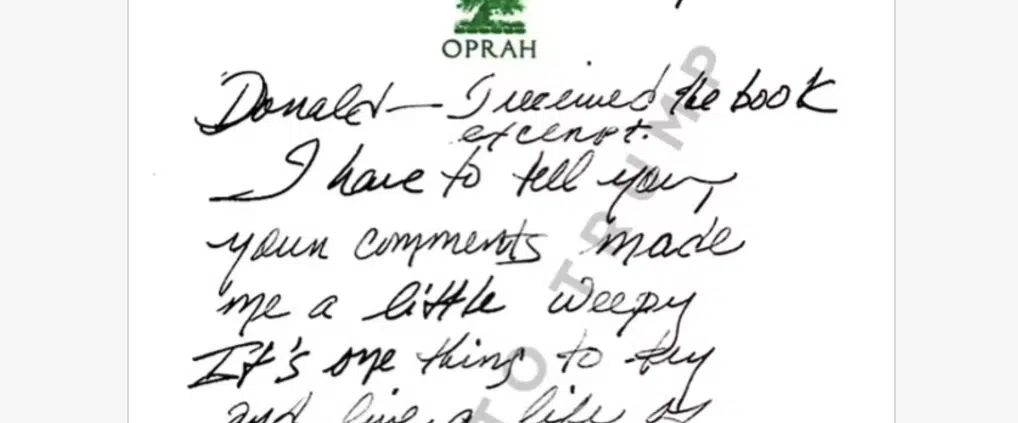 OPRAH
Donald — I received the book
excerpt.
I have to tell you,
your comments made
me a little weepy
It's one thing to try
and live a life of
TO TRUMP